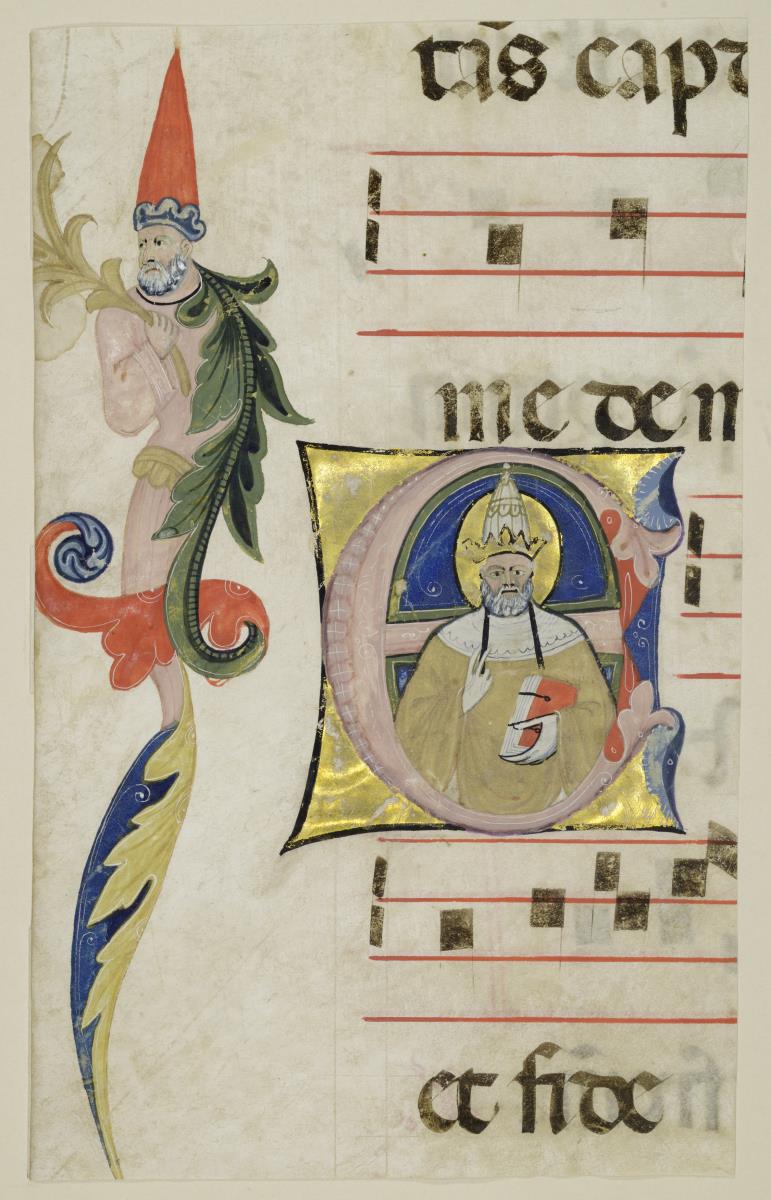 tās cap
me dem
E
et fide